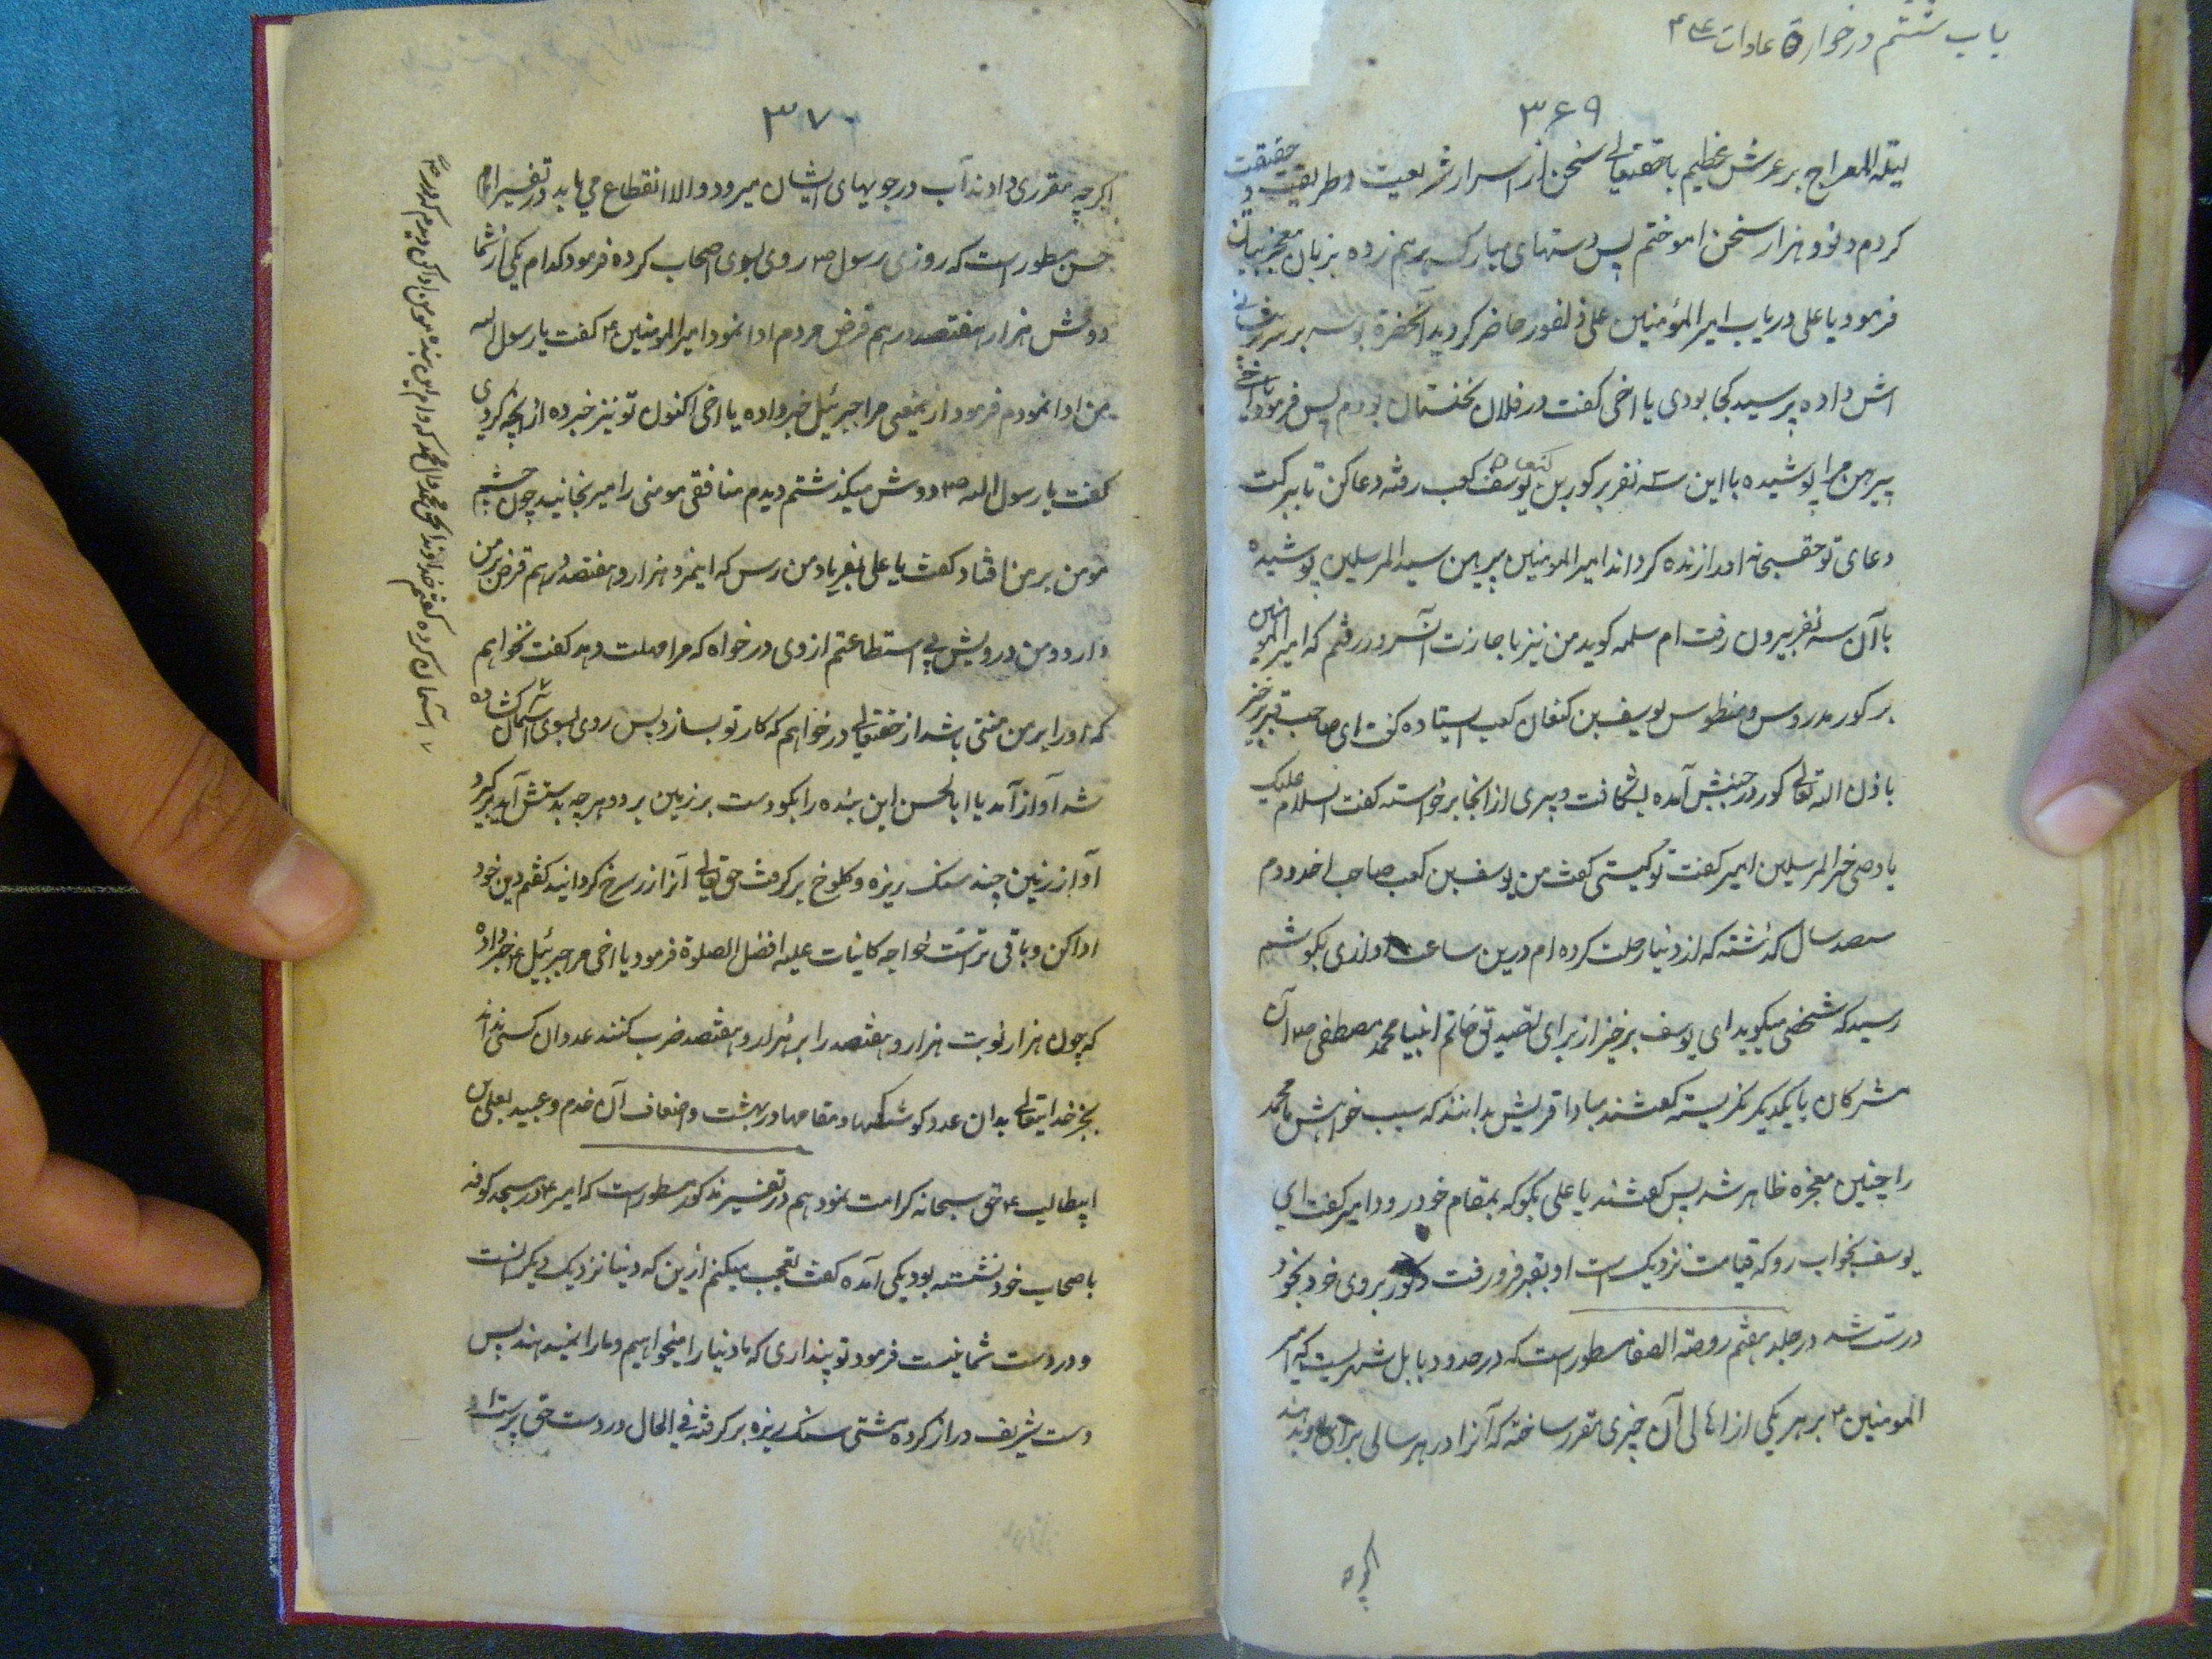 باب ششم در خوارق عادات
۳۶۹
لیلة المعراج بر عرش عظیم با حقتعالی سخن از اسرار شریعت و طریقت و حقیقت
کردم و نود هزار سخن اموختم پس دستهای مبارک برهم زده بزبان معجز بیان
فرمود یا علی دریاب امیرالمؤمنین علی فی الفور حاضر کردید آنحضرة بوسه بر سر
اش داده پرسید کجا بودی یا اخی کفت در فلان نخلستان بودم پس فرمود یا اخی
پیرهن مرا پوشیده با این سه نفر بر کور یوسف بن کنعان کعب رفته دعا کن تا ببرکت
دعای تو حقسبحانه او را زنده کرداند امیرالمومنین پیرهن سید المرسلین پوشیده
با آن سه نفر بیرون رفت ام سلمه کوید من نیز باجازت آنسرور رفتم که امیرالمومنین
بر کور مدروس و مطموس یوسف بن کنعان کعب ایستاده کفت ای صاحب قبر برخیز
باذن الله تعالی کور در جنبش آمده بشکافت و پیری از انجا برخواسته کفت السلام علیک
یا وصی خیر المرسلین امیر کفت تو کیستی کفت من یوسف بن کعب صاحب اخدودم
سیصد سال کذشته که از دنیا رحلت کرده ام درین ساعت اوازی بکوشم
رسید که شخصی میکوید ای یوسف برخیز از برای تصدیق خاتم انبیا محمد مصطفی ص آن
مشرکان با یکدیکر نکریسته کفتند مبادا قریش بدانند که بسبب خواهش ما محمد
را چنین معجزه ظاهر شد پس کفتند یا علی بکو که بمقام خود رود امیر کفت ای
یوسف بخواب رو که قیامت نزدیکست او بقبر فرو رفت و کور بروی خود بخود
درست شد در جلد هفتم روضة الصفا مسطورست که در حدود بابل شهریست که امیر
المومنین ع بر هر یکی از اهالی آن چیزی مقرر ساخته که آنرا در هر سالی
اکر چه
۳۷۰
اکر چه مقرری دادند آب در جویهای ایشان میرود و الا انقطاع می یابد در تفسیر امام
حسن مسطورست که روزی رسول ص روی بسوی اصحاب کرده فرمود کدام یکی از شما
دوش هزار هفتصد درهم قرض مردم ادا نمود امیرالمومنین ع کفت یا رسول الله
من ادا نمودم فرمود ازینمعنی مرا جبرئیل خبر داده یا اخی اکنون تو نیز خبر ده از انچه کردی
کفت یا رسول الله ص دوش میکذشتم دیدم منافقی مومنی را میرنجانید چون چشم
مومن بر من افتاد کفت یا علی بفریاد من رس که اینمرد هزار و هفتصد درهم قرض بر من
دارد و من درویش بی استطاعتم از وی درخواه که مرا مهلت دهد کفت نخواهم
که او را بر من منتی باشد از حقتعالی درخواهم که کار تو بسازد پس روی بسوی آسمان
شد آواز آمد یا ابالحسن این بنده را بکو دست بر زمین برد و هر چه بدستش آید برکیرد
او از زمین چند سنک ریزه و کلوخ برکرفت حق تعالی آنرا زر سرخ کردانید کفتم دین خود
ادا کن و باقی تراست خواجه کاینات علیه افضل الصلوة فرمود یا اخی مرا جبرئیل ع خبر داده
که چون هزار نوبت هزار و هفتصد را بر هزار و هفتصد ضرب کنند عدد ان کسی نداند
بجز خدایتعالی بدان عدد کوشکها و مقامها در بهشت و اضعاف آن خدم و عبید بعلی بن
ابیطالب ع حق سبحانه کرامت نمود هم در تفسیر مذکور مسطورست که امیر ع در مسجد کوفه
باصحاب خود نشسته بود یکی آمده کفت تعجب میکنم ازین که دنیا نزدیک دیکرانست
و در دست شما نیست فرمود تو پنداری که ما دنیا را میخواهیم و ما را نمیدهند پس
دست شریف دراز کرده مشتی سنک ریزه برکرفته فی الحال در دست حق پرست او